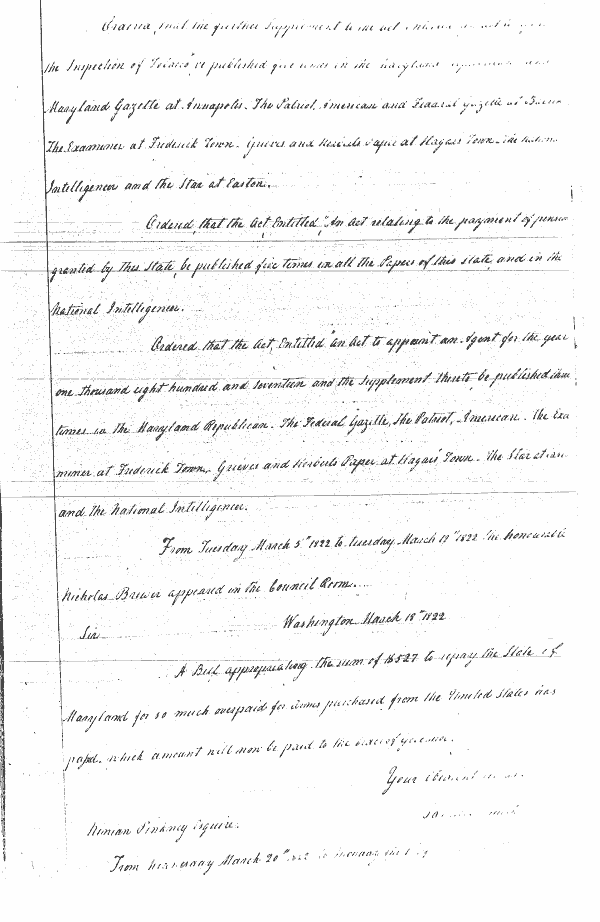 Ordered, that the further Supplement to the act
the Inspection of Tobacco be published five times in the Maryland
Maryland Gazette at Annapolis. The Patriot, American and Federal gazette at
The Examiner at Frederick Town. Grieves and Herberts Paper at Hagars Town. The
Intelligencer and the Star at Easton.
Ordered, that the Act, Entitled, "An Act relating to the payment of
granted by this State, be published five times in all the Papers of this State, and in the
National Intelligencer.
Ordered that the Act, Entitled "an Act to appoint an Agent for the year
one thousand eight hundred and seventeen and the Supplement thereto, be published
times in the Maryland Republican. The Federal Gazette, the Patriot, American. The Exa
miner at Frederick Town, Grieves and Herberts Paper at Hagars Town. The Star
and the National Intelligencer.
From Tuesday March 5th 1822 to Tuesday March 19th 1822 the honourable
Nicholas Brewer appeared in the Council Room.
Washington March 18th 1822
Sir
A Bill appropriating the sum of 18527 to repay the State of
Maryland for so much overpaid for arms purchased from the United States has
pass'd. which amount will now be paid to the order of
Your obedient
Ninian Pinkney Esquire.
From Wednesday March 20th to